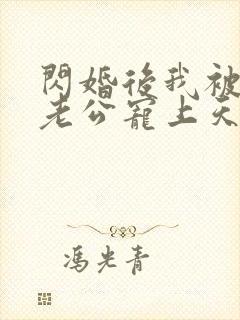 閃婚後我被
老公寵上天
馮光青